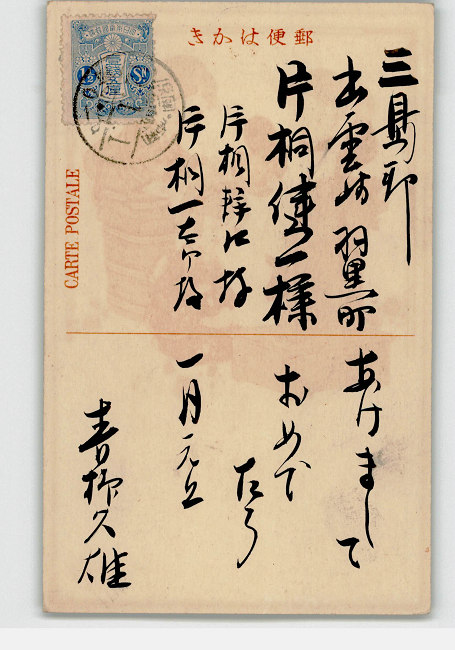 きかは便郵
CARTE POSTALE
三島郡
出雲崎羽黒町
片桐健一様
片桐
片桐一
あけまして
おめで
たう
一月元旦
青柳久雄